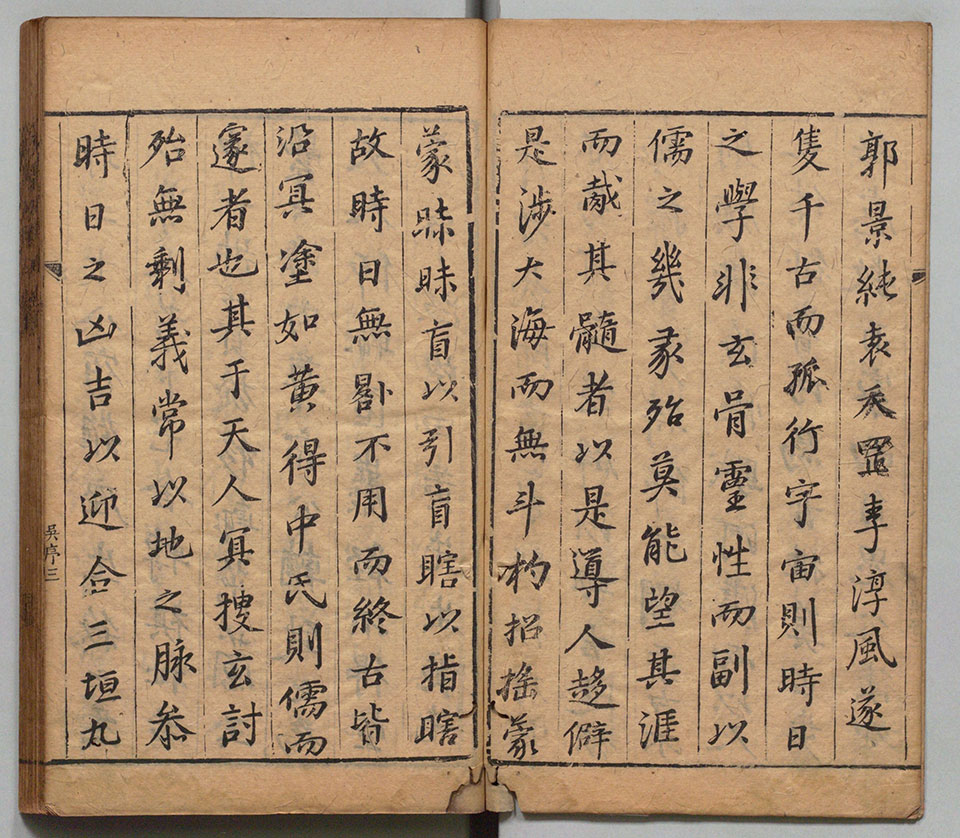 郭景純袁天罡李淳風遂
隻千古而孤行宇宙則時日
之學非玄骨靈性而副以
儒之幾彖殆莫能望其涯
而胾其髓者以是導人趍僻
是涉大海而無斗杓招搖蒙
蒙昧昧盲以引盲瞎以指瞎
故時日無不用而終古皆
沿冥塗如黄得中氏則儒而
邃者也其于天人冥搜玄討
殆無剩義常以地之脉叅
時日之凶吉以迎合三垣九
吳序三